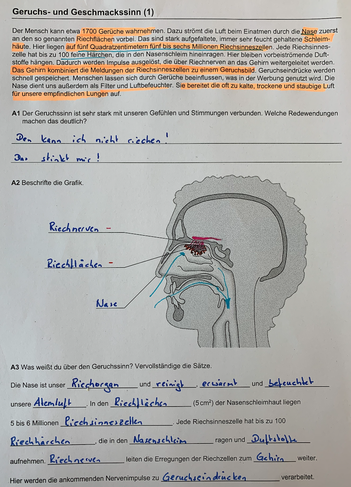 Geruchs- und Geschmackssinn (1)
Der Mensch kann etwa 1700 Gerüche wahrnehmen. Dazu strömt die Luft beim Einatmen durch die Nase zuerst
an den so genannten Riechflächen vorbei. Das sind stark aufgefaltete, immer sehr feucht gehaltene Schleim-
häute. Hier liegen auf fünf Quadratzentimetern fünf bis sechs Millionen Riechsinneszellen. Jede Riechsinnes-
zelle hat bis zu 100 feine Härchen, die in den Nasenschleim hineinragen. Hier bleiben vorbeiströmende Duft-
stoffe hängen. Dadurch werden Impulse ausgelöst, die über Riechnerven an das Gehirn weitergeleitet werden.
Das Gehirn kombiniert die Meldungen der Riechsinneszellen zu einem Geruchsbild. Geruchseindrücke werden
schnell gespeichert. Menschen lassen sich durch Gerüche beeinflussen, was in der Werbung genutzt wird. Die
Nase dient uns außerdem als Filter und Luftbefeuchter. Sie bereitet die oft zu kalte, trockene und staubige Luft
für unsere empfindlichen Lungen auf.
A1 Der Geruchssinn ist sehr stark mit unseren Gefühlen und Stimmungen verbunden. Welche Redewendungen
machen das deutlich?
Den kann ich nicht riechen!
Das stinkt mir!
A2 Beschrifte die Grafik.
Riechnerven
Riechflächen
Nase
A3 Was weißt du über den Geruchssinn? Vervollständige die Sätze.
Die Nase ist unser Riechorgan und reinigt, erwärmt und befeuchtet
unsere Atemluft. In den Riechflächen (5 cm²) der Nasenschleimhaut liegen
5 bis 6 Millionen Riechsinneszellen. Jede Riechsinneszelle hat bis zu 100
Riechhärchen, die in den Nasenschleim ragen und Duftstoffe
aufnehmen. Riechnerven leiten die Erregungen der Riechzellen zum Gehirn weiter.
Hier werden die ankommenden Nervenimpulse zu Geruchseindrücken verarbeitet.